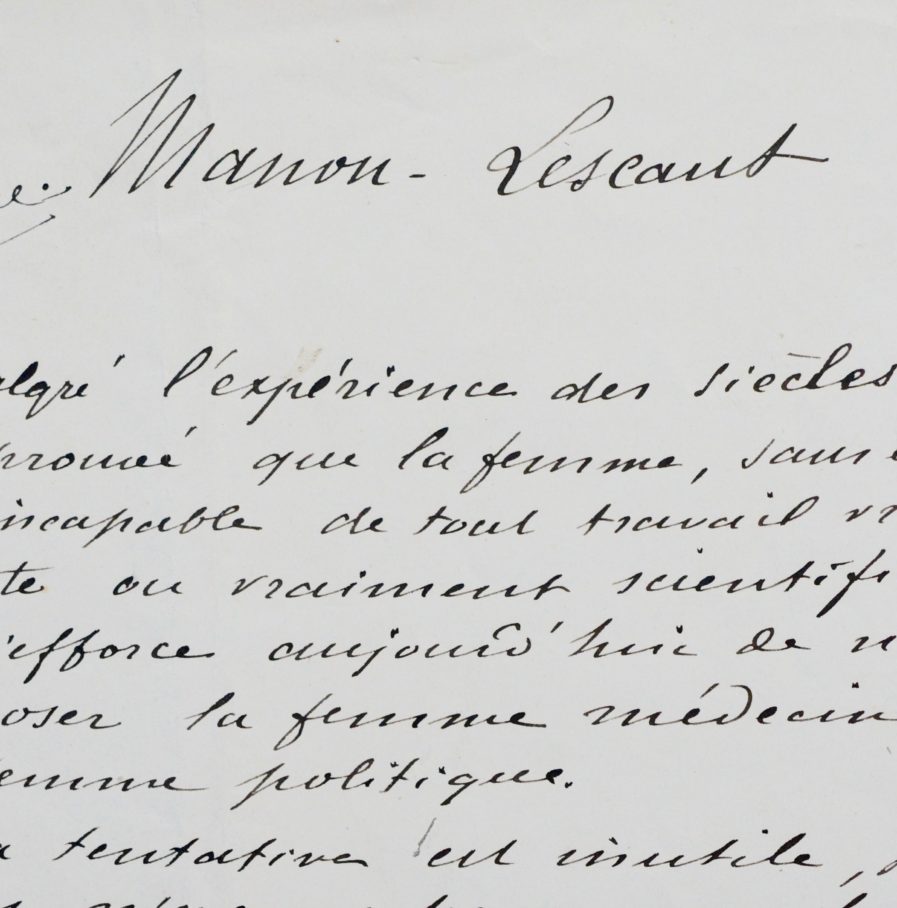 Manon - Lescaut
algré l'expérience des siècles
prouvé que la femme, sans
incapable de tout travail
te ou vraiment scientifi
'efforce aujourd'hui de n
oser la femme médecin
emme politique.
a tentative est inutile,